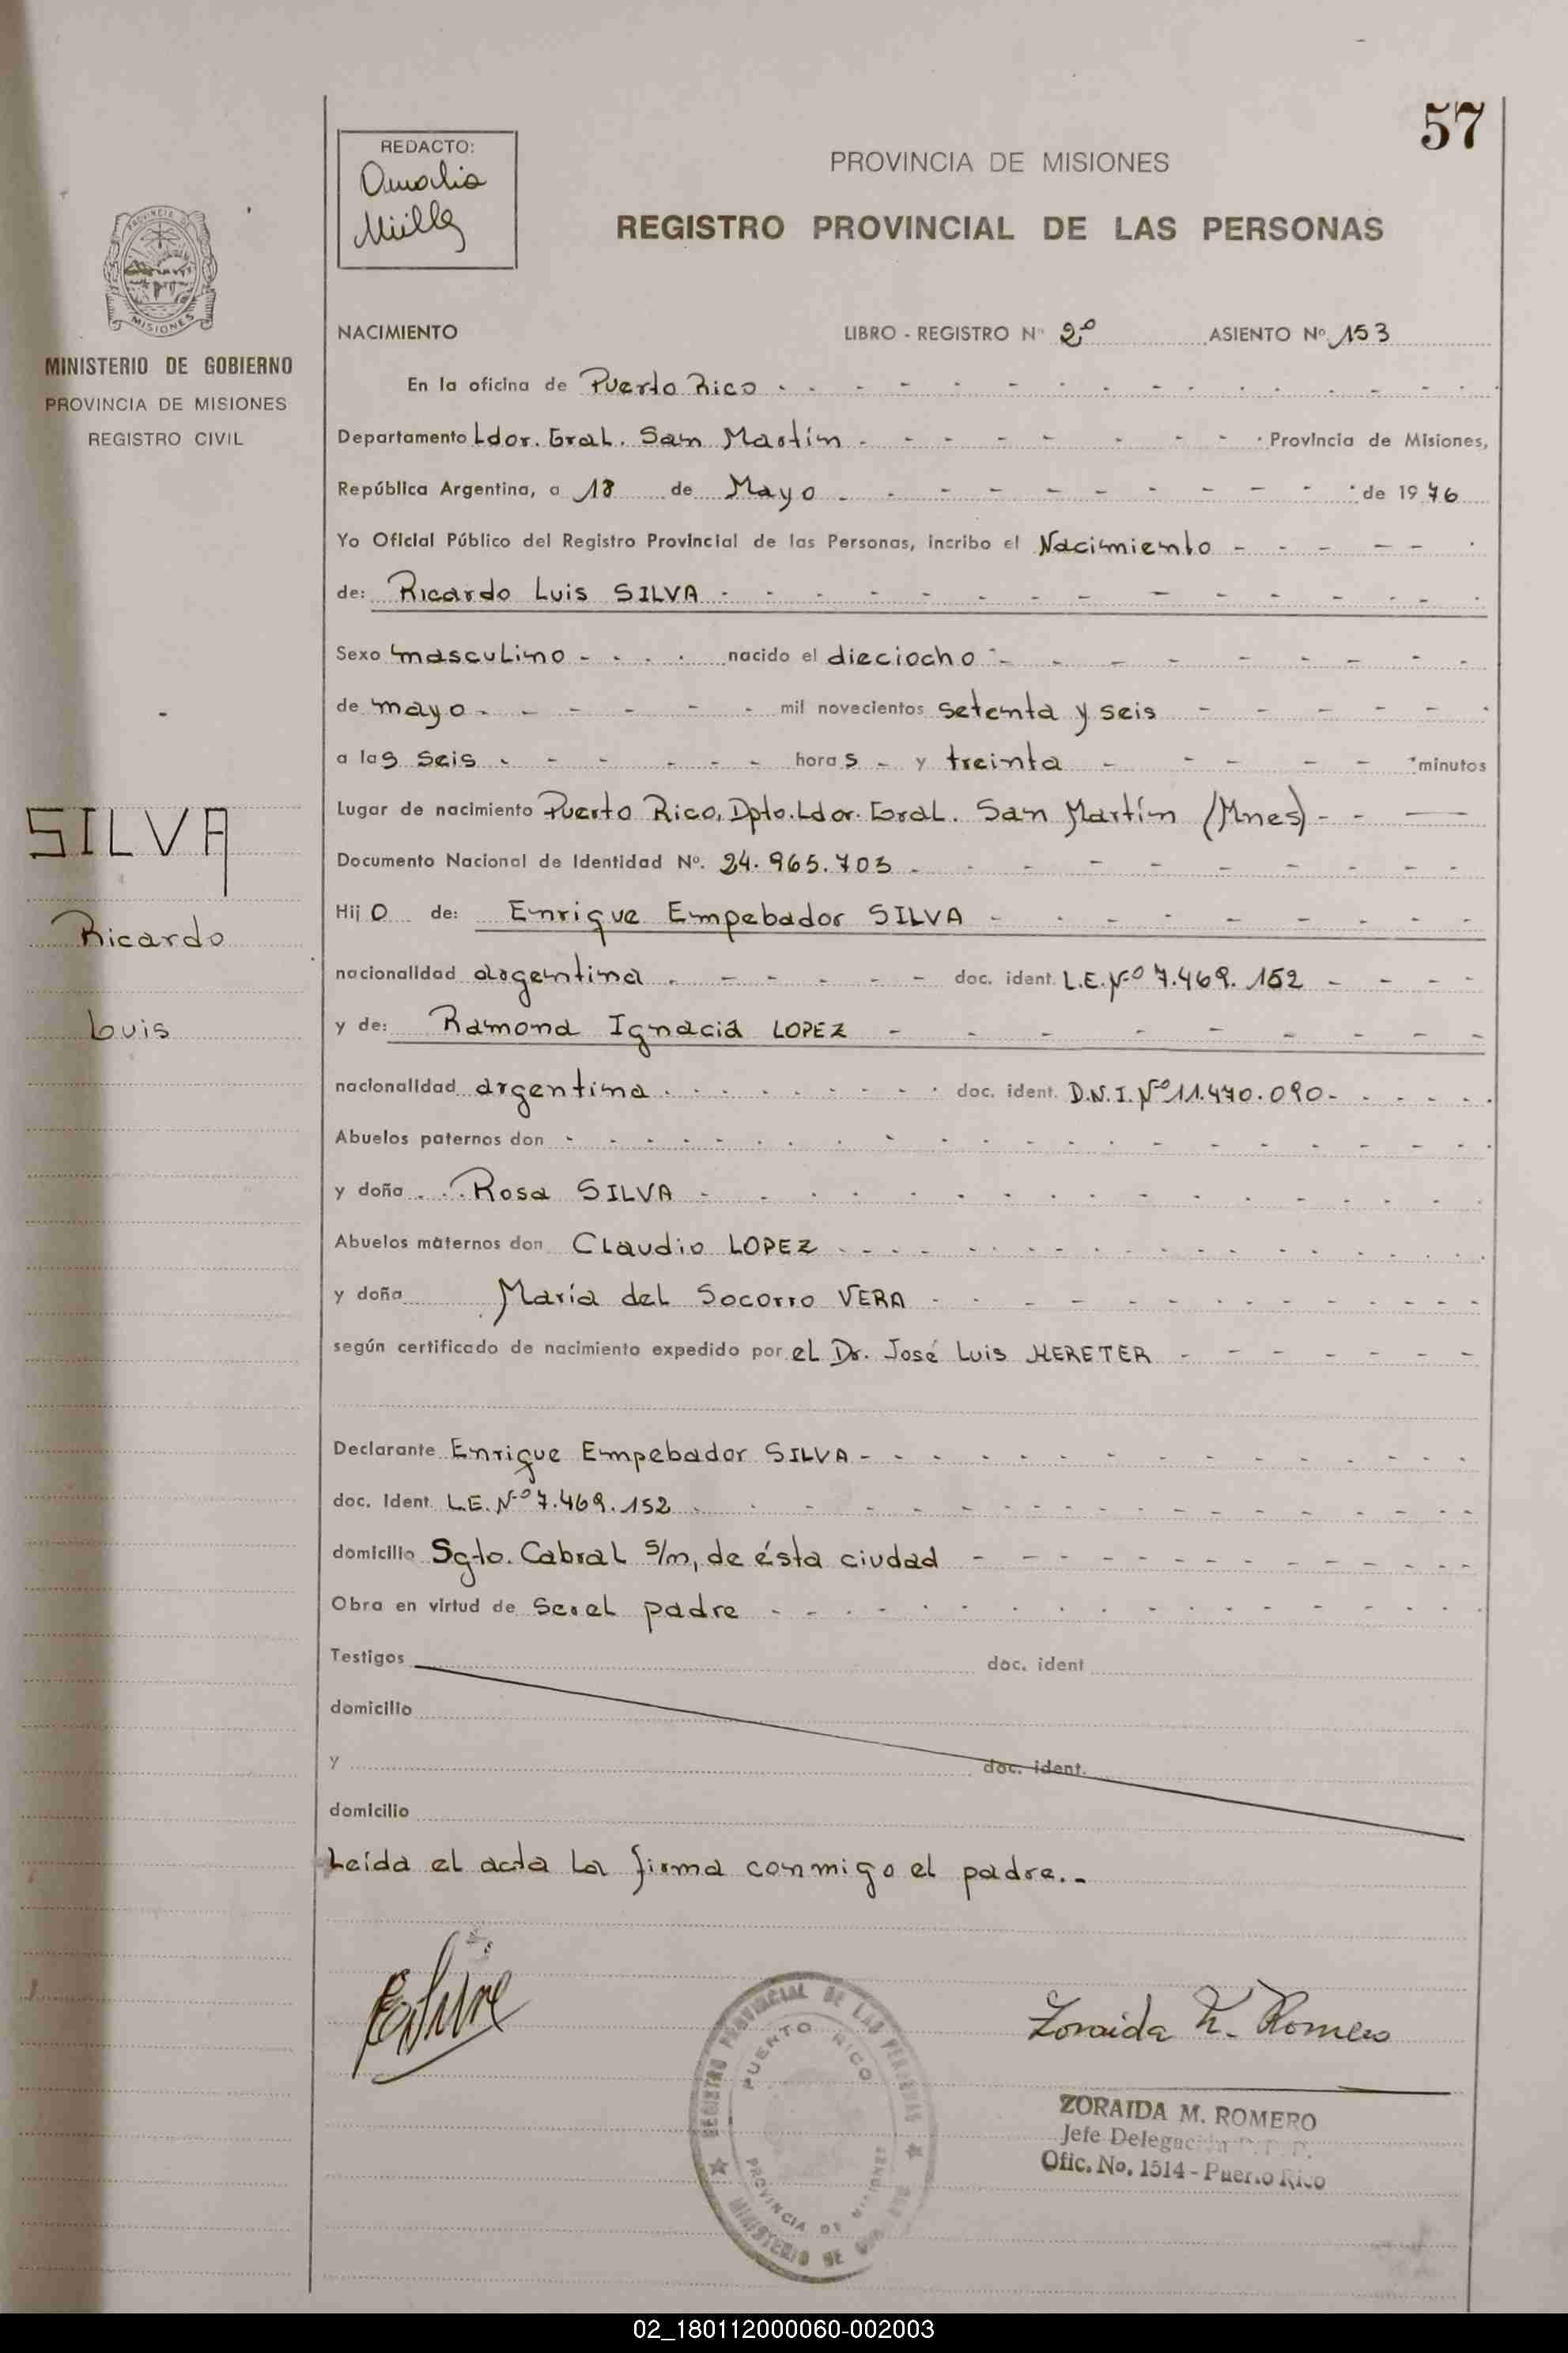 57
REDACTO:
Amalia
PROVINCIA DE MISIONES
REGISTRO PROVINCIAL DE LAS PERSONAS
PROVINCIA DE
MISIONES
MINISTERIO DE GOBIERNO
PROVINCIA DE MISIONES
REGISTRO CIVIL
NACIMIENTO LIBRO - REGISTRO Nº 2º ASIENTO Nº 153
En la oficina de Puerto Rico
Departamento Ldor. Gral. San Martín Provincia de Misiones,
República Argentina, a 18 de Mayo de 1976
Yo Oficial Público del Registro Provincial de las Personas, incribo el Nacimiento
de: Ricardo Luis SILVA
Sexo masculino nacido el dieciocho
de mayo mil novecientos setenta y seis
a las seis horas y treinta minutos
Lugar de nacimiento Puerto Rico, Dpto. Ldor. Gral. San Martín (Mnes)
Documento Nacional de Identidad Nº. 24.965.703
Hijo de: Enrique Empebador SILVA
nacionalidad argentina doc. ident. L.E. Nº 7.469.152
y de: Ramona Ignacia LOPEZ
nacionalidad argentina doc. ident. D.N.I. Nº 11.470.090
Abuelos paternos don
y doña Rosa SILVA
Abuelos maternos don Claudio LOPEZ
y doña María del Socorro VERA
según certificado de nacimiento expedido por el Dr. José Luis HERETER
Declarante Enrique Empebador SILVA
doc. Ident. L.E. Nº 7.469.152
domicilio Sgto. Cabral s/n, de ésta ciudad
Obra en virtud de ser el padre
Testigos doc. ident
domicilio
y doc. ident.
domicilio
Leída el acta la firma conmigo el padre.-
SILVA
Ricardo
Luis
Zoraida M. Romero
REGISTRO PROVINCIAL DE LAS PERSONAS
PUERTO RICO
PROVINCIA DE MISIONES
MINISTERIO DE
ZORAIDA M. ROMERO
Jefe Delegación
Ofic. No. 1514 - Puerto Rico
02_180112000060-002003